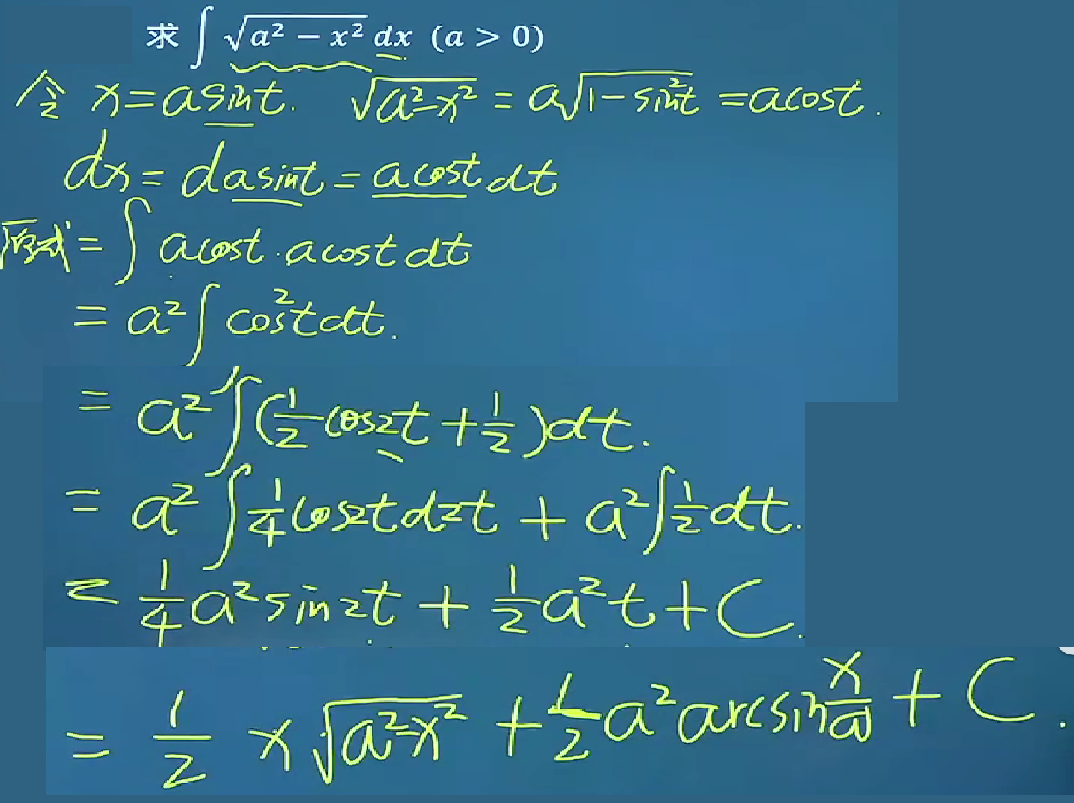 求 ∫ √(a² − x²) dx (a > 0)
令 x = a sin t. √(a²-x²) = a√(1-sin²t) = a cos t.
dx = d a sin t = a cos t dt
原式 = ∫ a cos t · a cos t dt
= a² ∫ cos² t dt.
= a² ∫ (1/2 cos2t + 1/2) dt.
= a² ∫ 1/4 cos2t d2t + a² ∫ 1/2 dt.
= 1/4 a² sin 2t + 1/2 a² t + C.
= 1/2 x √(a²-x²) + 1/2 a² arcsin x/a + C.